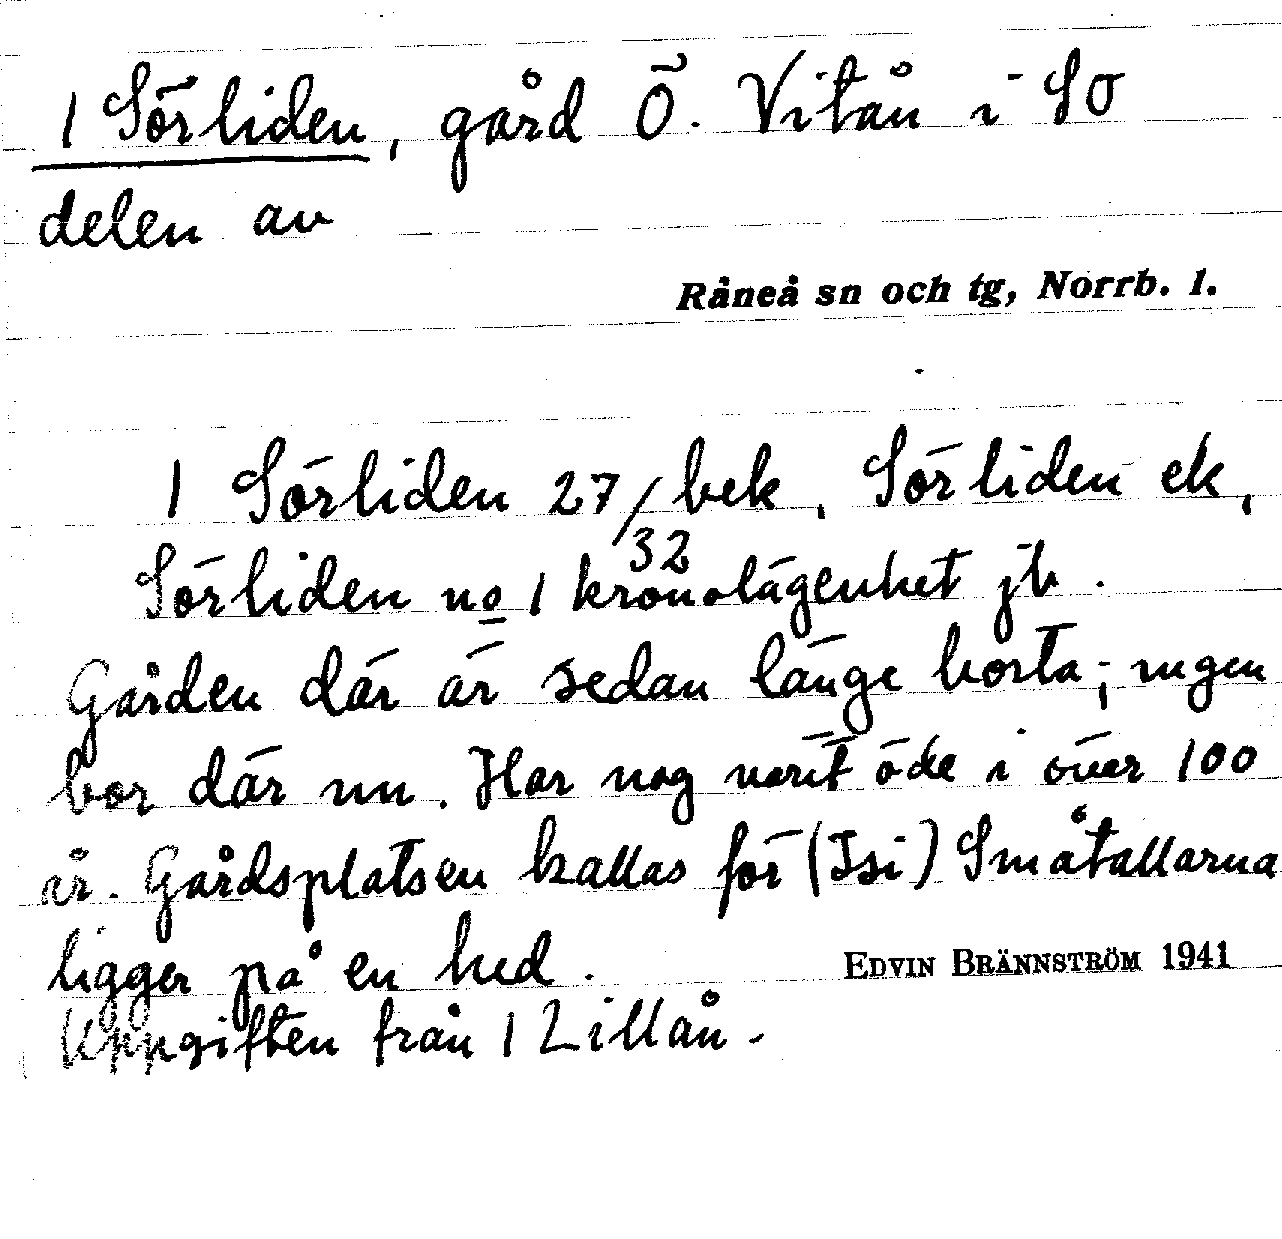 1 Sörliden, gård Ö. Vitån i SO
delen av
Råneå sn och tg, Norrb. l.
1 Sörliden 27/32 bek, Sörliden ek,
Sörliden no 1 kronolägenhet jb.
Gården där är sedan länge borta; ingen
bor där nu. Har nog varit öde i över 100
år. Gårdsplatsen kallas för (Isi) Småtallarna
ligger på en hed.
EDVIN BRÄNNSTRÖM 1941
Uppgiften från 1 Lillån.